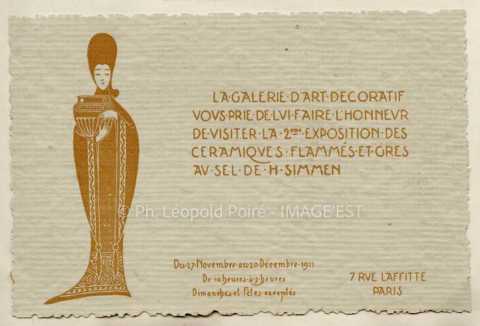 LA·GALERIE·D'ART·DECORATIF
VOVS·PRIE·DE·LVI·FAIRE·L'HONNEVR
DE·VISITER·LA·2ème·EXPOSITION·DES
CERAMIQVES·FLAMMÉS·ET·GRES
AV·SEL·DE·H·SIMMEN
© Ph. Léopold Poiré - IMAGE'EST
Du·27·Novembre·au·20·Décembre·1911
De·10·heures·à·7·heures
Dimanches·et·Fêtes·exceptés
7 RVE LAFFITTE
PARIS